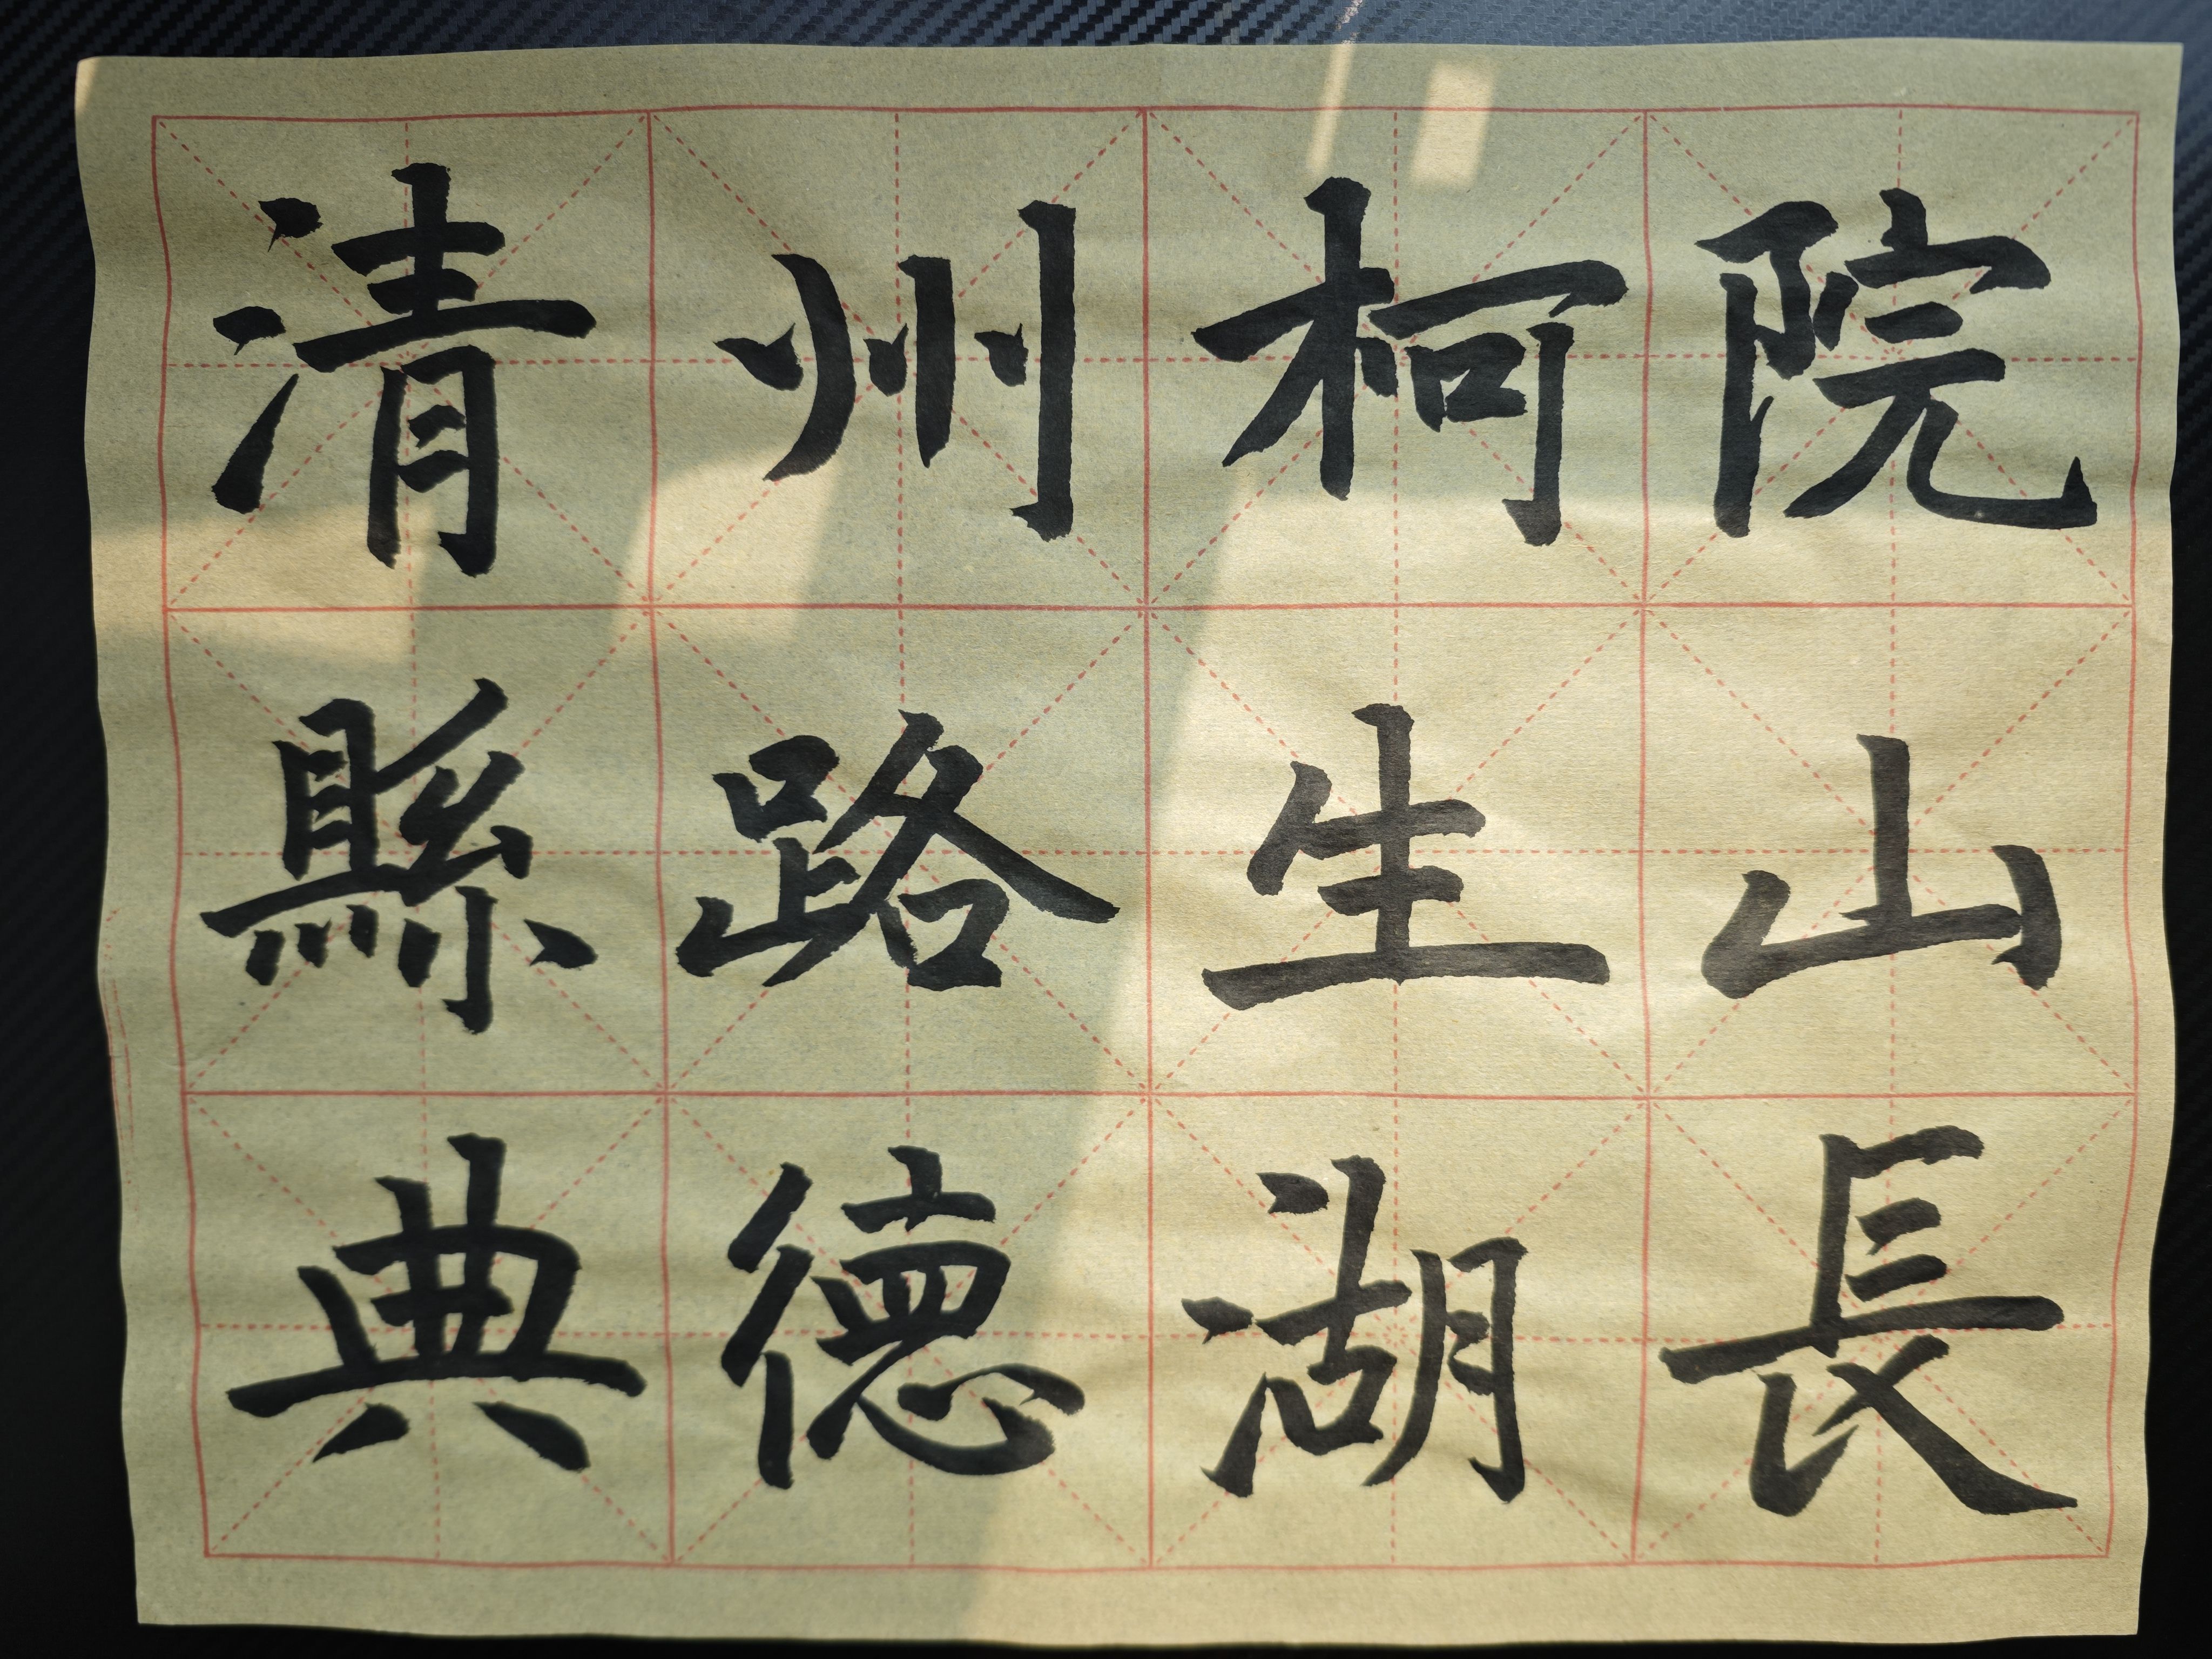 院山長
柯生湖
州路德
清縣典